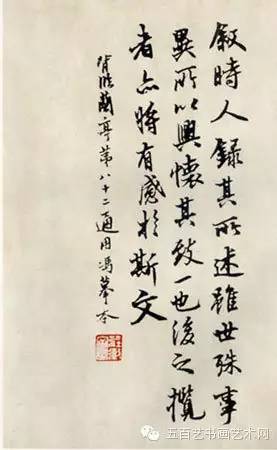 敘時人錄其所述雖世殊事
異所以興懷其致一也後之攬
者亦將有感於斯文
背臨蘭亭第八十二通用馮摹本
五百艺书画艺术网